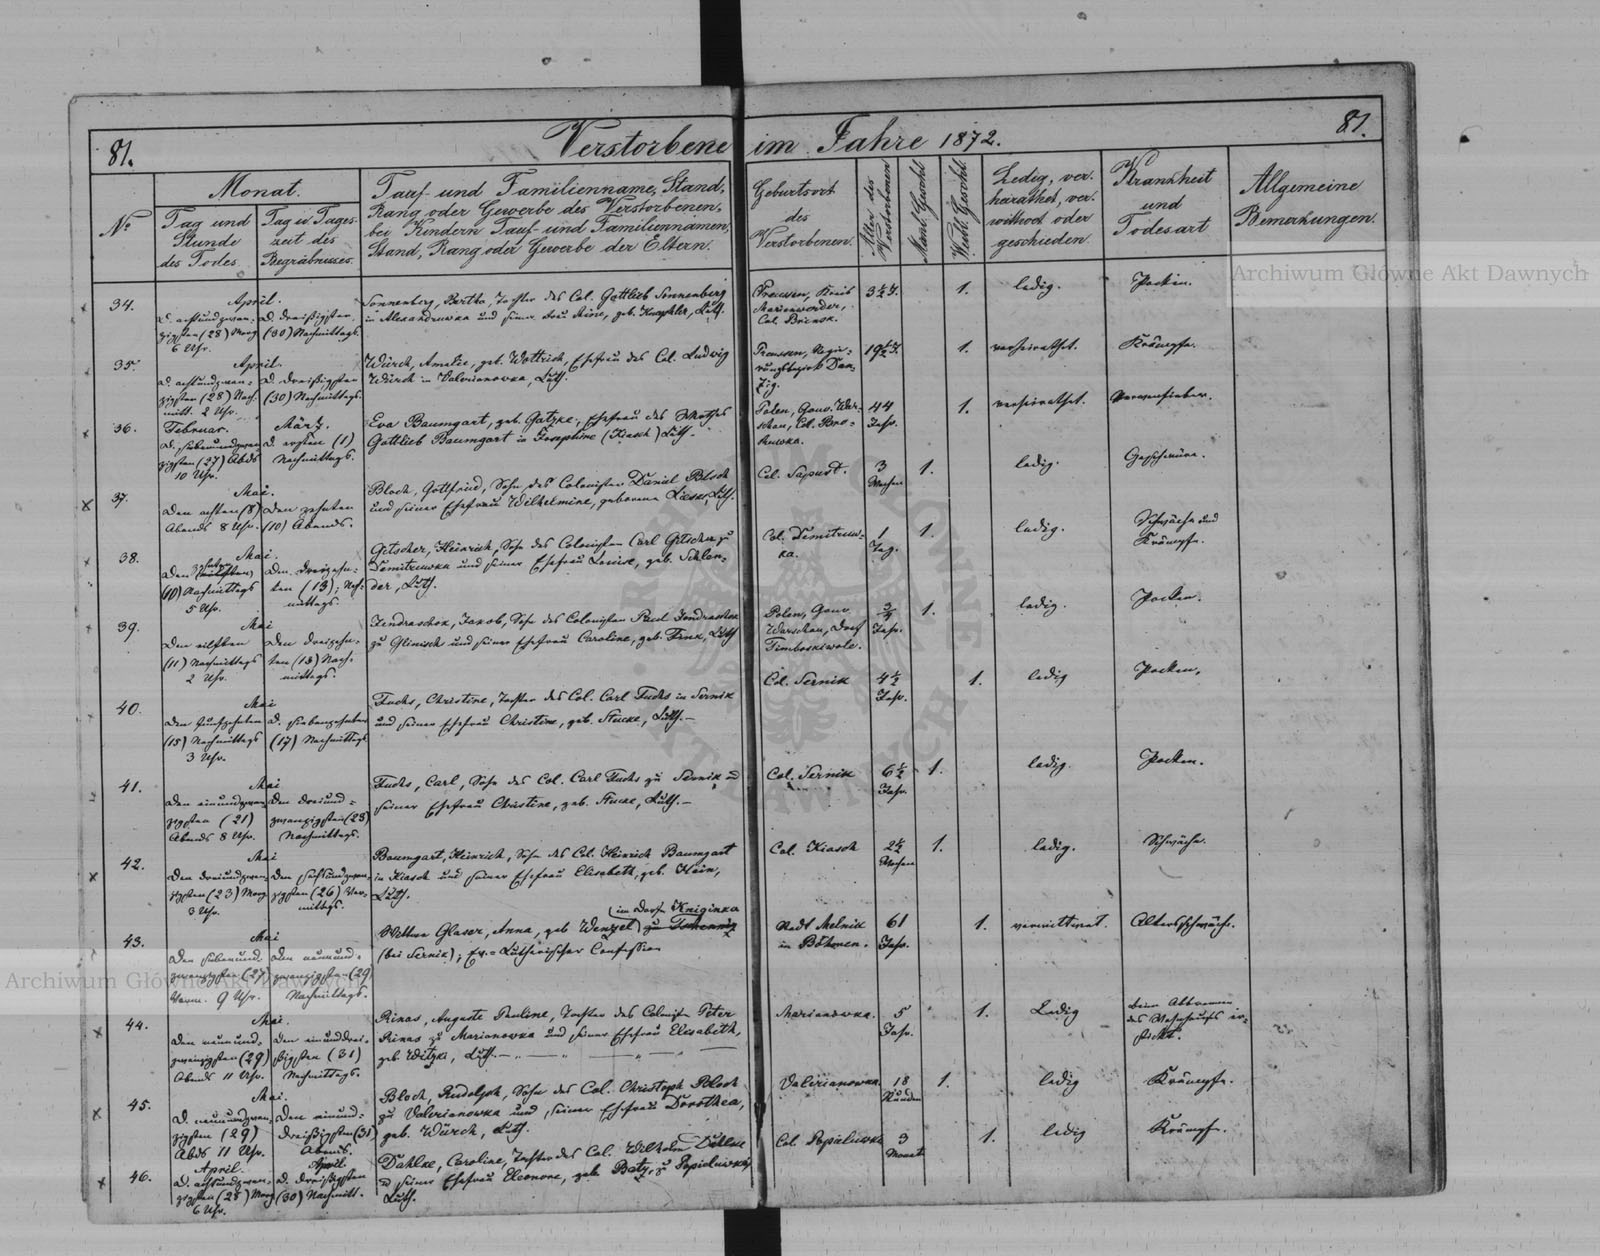 81.
Verstorbene im Jahre 1872.
81.
No
Monat.
Tag und Stunde des Todes
Tag u. Tageszeit des Begräbnisses.
Tauf- und Familienname, Stand,
Rang oder Gewerbe des Verstorbenen,
bei Kindern Tauf- und Familiennamen,
Stand, Rang oder Gewerbe der Eltern.
Geburtsort
des
Verstorbenen.
Alter des
Verstorbenen
Männl. Geschl.
Weibl. Geschl.
Ledig, ver-
heirathet, ver-
wittwet oder
geschieden.
Krankheit
und
Todesart
Allgemeine
Bemerkungen.
34.
April.
d. achtundzwan- d. dreißigsten
zigsten (28) Morg (30) Nachmittags.
6 Uhr.
Sonnenberg, Bertha, Tochter des Col. Gottlieb Sonnenberg
in Alexandruwka und seiner Frau
Preussen, Kreis
Marienwerder,
Col.
3½ J.
1.
ledig.
Pocken.
35.
April.
d. achtundzwan- d. dreißigsten
zigsten (28) Nach- (30) Nachmittags.
mitt. 2 Uhr.
Würch, Amalie, geb. Wottrich, Ehefrau des Col. Ludwig
Würch in Valerianowka, Luth.
Preussen, Regie-
rungsbezirk Dan-
zig.
19½ J.
1.
verheirathet.
Krämpfe.
36.
Februar. März.
d. siebenundzwan d. ersten (1)
zigsten (27) Abds Nachmittags.
10 Uhr.
Eva Baumgart, geb. Gatzke, Ehefrau des Wirthes
Gottlieb Baumgart in Josephine (Kiasch) Luth.
Polen, Gouv. War-
schau, Col. Bro-
nuwka.
44
Jahr.
1.
verheirathet.
Nervenfieber.
37.
Mai.
Den achten (8) Den zehnten
Abends 8 Uhr. (10) Abends.
Bloch, Gottfried, Sohn des Colonisten Daniel Bloch
und seiner Ehefrau Wilhelmine, geborene Lieser, Luth.
Col. Sapust.
3
Wochen
1.
ledig.
Geschwüre.
38.
Mai.
Den zehnten Den dreizehn-
(10) Nachmittags ten (13), Nach-
5 Uhr. mittags.
Getscher, Heinrich, Sohn des Colonisten Carl Getscher zu
Demitruwka und seiner Ehefrau Louise, geb. Schlon-
der, Luth.
Col. Demitruw-
ka.
1
Tag.
1.
ledig.
Schwäche und
Krämpfe.
39.
Mai
Den eilften Den dreizehn-
(11) Nachmittags ten (13) Nach-
2 Uhr. mittags.
Jendraschek, Jakob, Sohn des Colonisten Paul Jendraschek
zu Glinisch und seiner Ehefrau Caroline, geb. Fenx, Luth
Polen, Gouv.
Warschau, Dorf
Timboskiwole.
¾
Jahr.
1.
ledig.
Pocken.
40.
Mai
Den funfzehnten d. siebenzehnten
(15) Nachmittags (17) Nachmittags
3 Uhr.
Fuchs, Christine, Tochter des Col. Carl Fuchs in Sernik
und seiner Ehefrau Christine, geb. Stucke, Luth. –
Col. Sernik
4½
Jahr.
1.
ledig
Pocken.
41.
Mai
Den einundzwan- Den dreiund-
zigsten (21) zwanzigsten (23)
Abends 8 Uhr. Nachmittags.
Fuchs, Carl, Sohn des Col. Carl Fuchs zu Sernik u
seiner Ehefrau Christine, geb. Stucke, Luth. –
Col. Sernik
6½
Jahr.
1.
ledig.
Pocken.
42.
Mai
Den dreiundzwan- Den sechsundzwan-
zigsten (23) Morg zigsten (26) Vor-
3 Uhr. mittags.
Baumgart, Heinrich, Sohn des Col. Heinrich Baumgart
in Kiasch und seiner Ehefrau Elisabeth, geb. Hein,
Luth.
Col. Kiasch
2½
Wochen
1.
ledig.
Schwäche.
43.
Mai
Den siebenund- Den neunund-
zwanzigsten (27) zwanzigsten (29
Vorm. 9 Uhr. Nachmittags.
im Dorfe Kniginka
Wittwe Glaser, Anna, geb Wenzel zu
(bei Sernik); Ev.-Lutherischer Confession
Stadt Melnik
in Böhmen.
61
Jahr.
1.
verwittwet.
Altersschwäche.
44.
Mai.
Den neunund- Den einunddrei-
zwanzigsten (29) ßigsten (31)
Abends 11 Uhr. Nachmittags.
Rinas, Auguste Pauline, Tochter des Colonisten Peter
Rinas zu Marianowka und seiner Ehefrau Elisabeth,
geb Witzki, Luth. –
Marianowka.
5
Jahr.
1.
Ledig
beim Abbrennen
des Wohnhauses er-
stickt.
45.
Mai.
d. neunundzwan- Den einund-
zigsten (29) dreißigsten (31)
Abds 11 Uhr. Abends.
Bloch, Rudolph, Sohn des Col. Christoph Bloch
zu Valerianowka und seiner Ehefrau Dorothea,
geb. Würch, Luth.
Valerianowka.
18
Stunden
1.
ledig
Krämpfe.
46.
April. April.
d. achtundzwan- d. dreißigsten
zigsten (28) Morg (30) Nachmitt.
6 Uhr.
Dahlke, Caroline, Tochter des Col. Wilhelm Dahlke
u seiner Ehefrau Eleonore, geb Betz, zu Popieluwka,
Luth.
Col. Popieluwka
3
Monat
1.
ledig
Krämpfe.
Archiwum Główne Akt Dawnych
Archiwum Główne Akt Dawnych